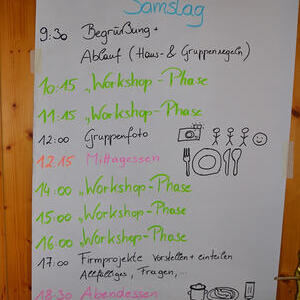 Samstag
9:30 Begrüßung +
Ablauf (Haus- & Gruppenregeln)
10:15 „Workshop-Phase
11:15 „Workshop-Phase
12:00 Gruppenfoto
12:15 Mittagessen
14:00 „Workshop-Phase
15:00 „Workshop-Phase
16:00 „Workshop-Phase
17:00 Firmprojekte vorstellen + einteilen
Allfälliges, Fragen,...
18:30 Abendessen